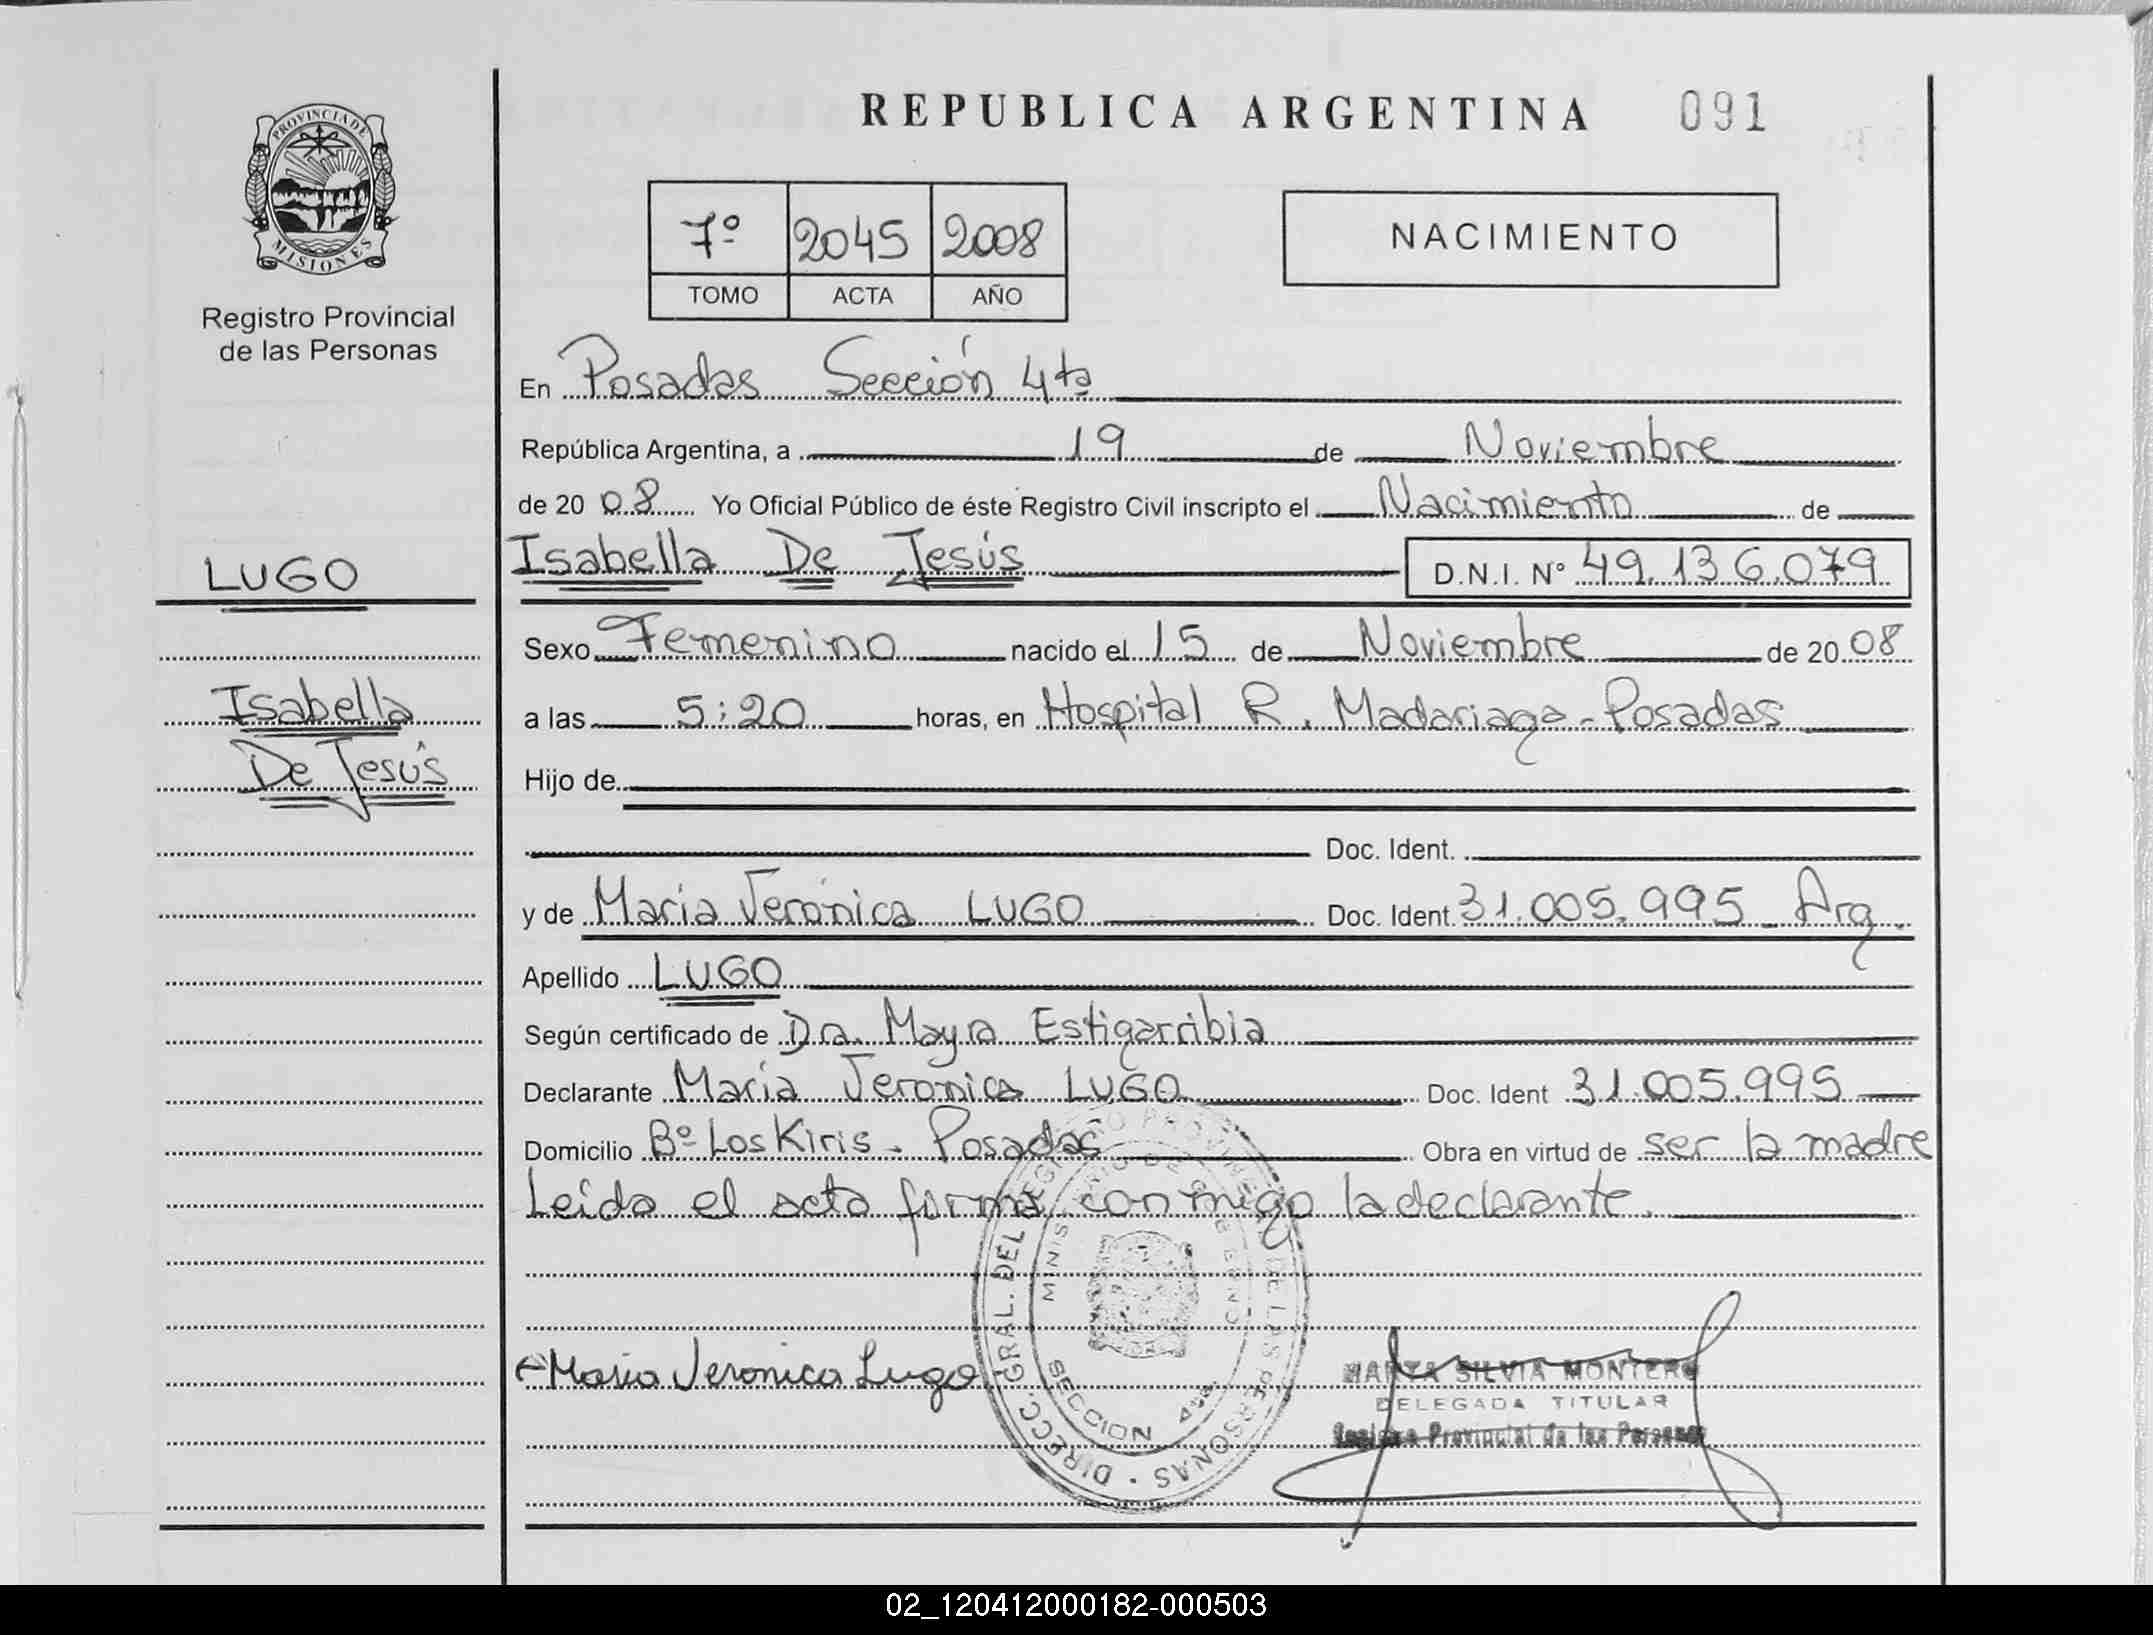 REPUBLICA ARGENTINA 091
PROVINCIA DE
MISIONES
Registro Provincial
de las Personas
7º 2045 2008
TOMO ACTA AÑO
NACIMIENTO
En Posadas Sección 4ta
República Argentina, a 19 de Noviembre
de 20 08 Yo Oficial Público de éste Registro Civil inscripto el Nacimiento de
Isabella De Jesús D.N.I. N° 49.136.079
LUGO
Isabella
De Jesús
Sexo Femenino nacido el 15 de Noviembre de 20 08
a las 5:20 horas, en Hospital R. Madariaga - Posadas
Hijo de
Doc. Ident.
y de María Verónica LUGO Doc. Ident. 31.005.995 Arg.
Apellido LUGO
Según certificado de Dra. Mayra Estigarribia
Declarante María Veronica LUGO Doc. Ident 31.005.995
Domicilio Bº Los Kiris - Posadas Obra en virtud de ser la madre
Leída el acta firma conmigo la declarante.
Maria Veronica Lugo
DIRECC. GRAL. DEL REGISTRO PROVINCIAL DE LAS PERSONAS
SECCION 4ta
MARTA SILVIA MONTERO
DELEGADA TITULAR
Registro Provincial de las Personas
02_120412000182-000503